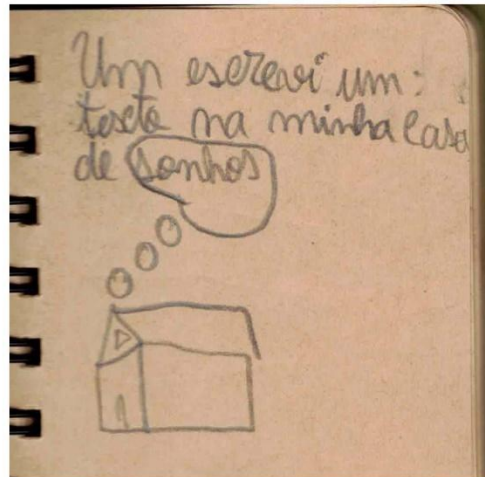 Um escrevi um:
texto na minha casa
de sonhos